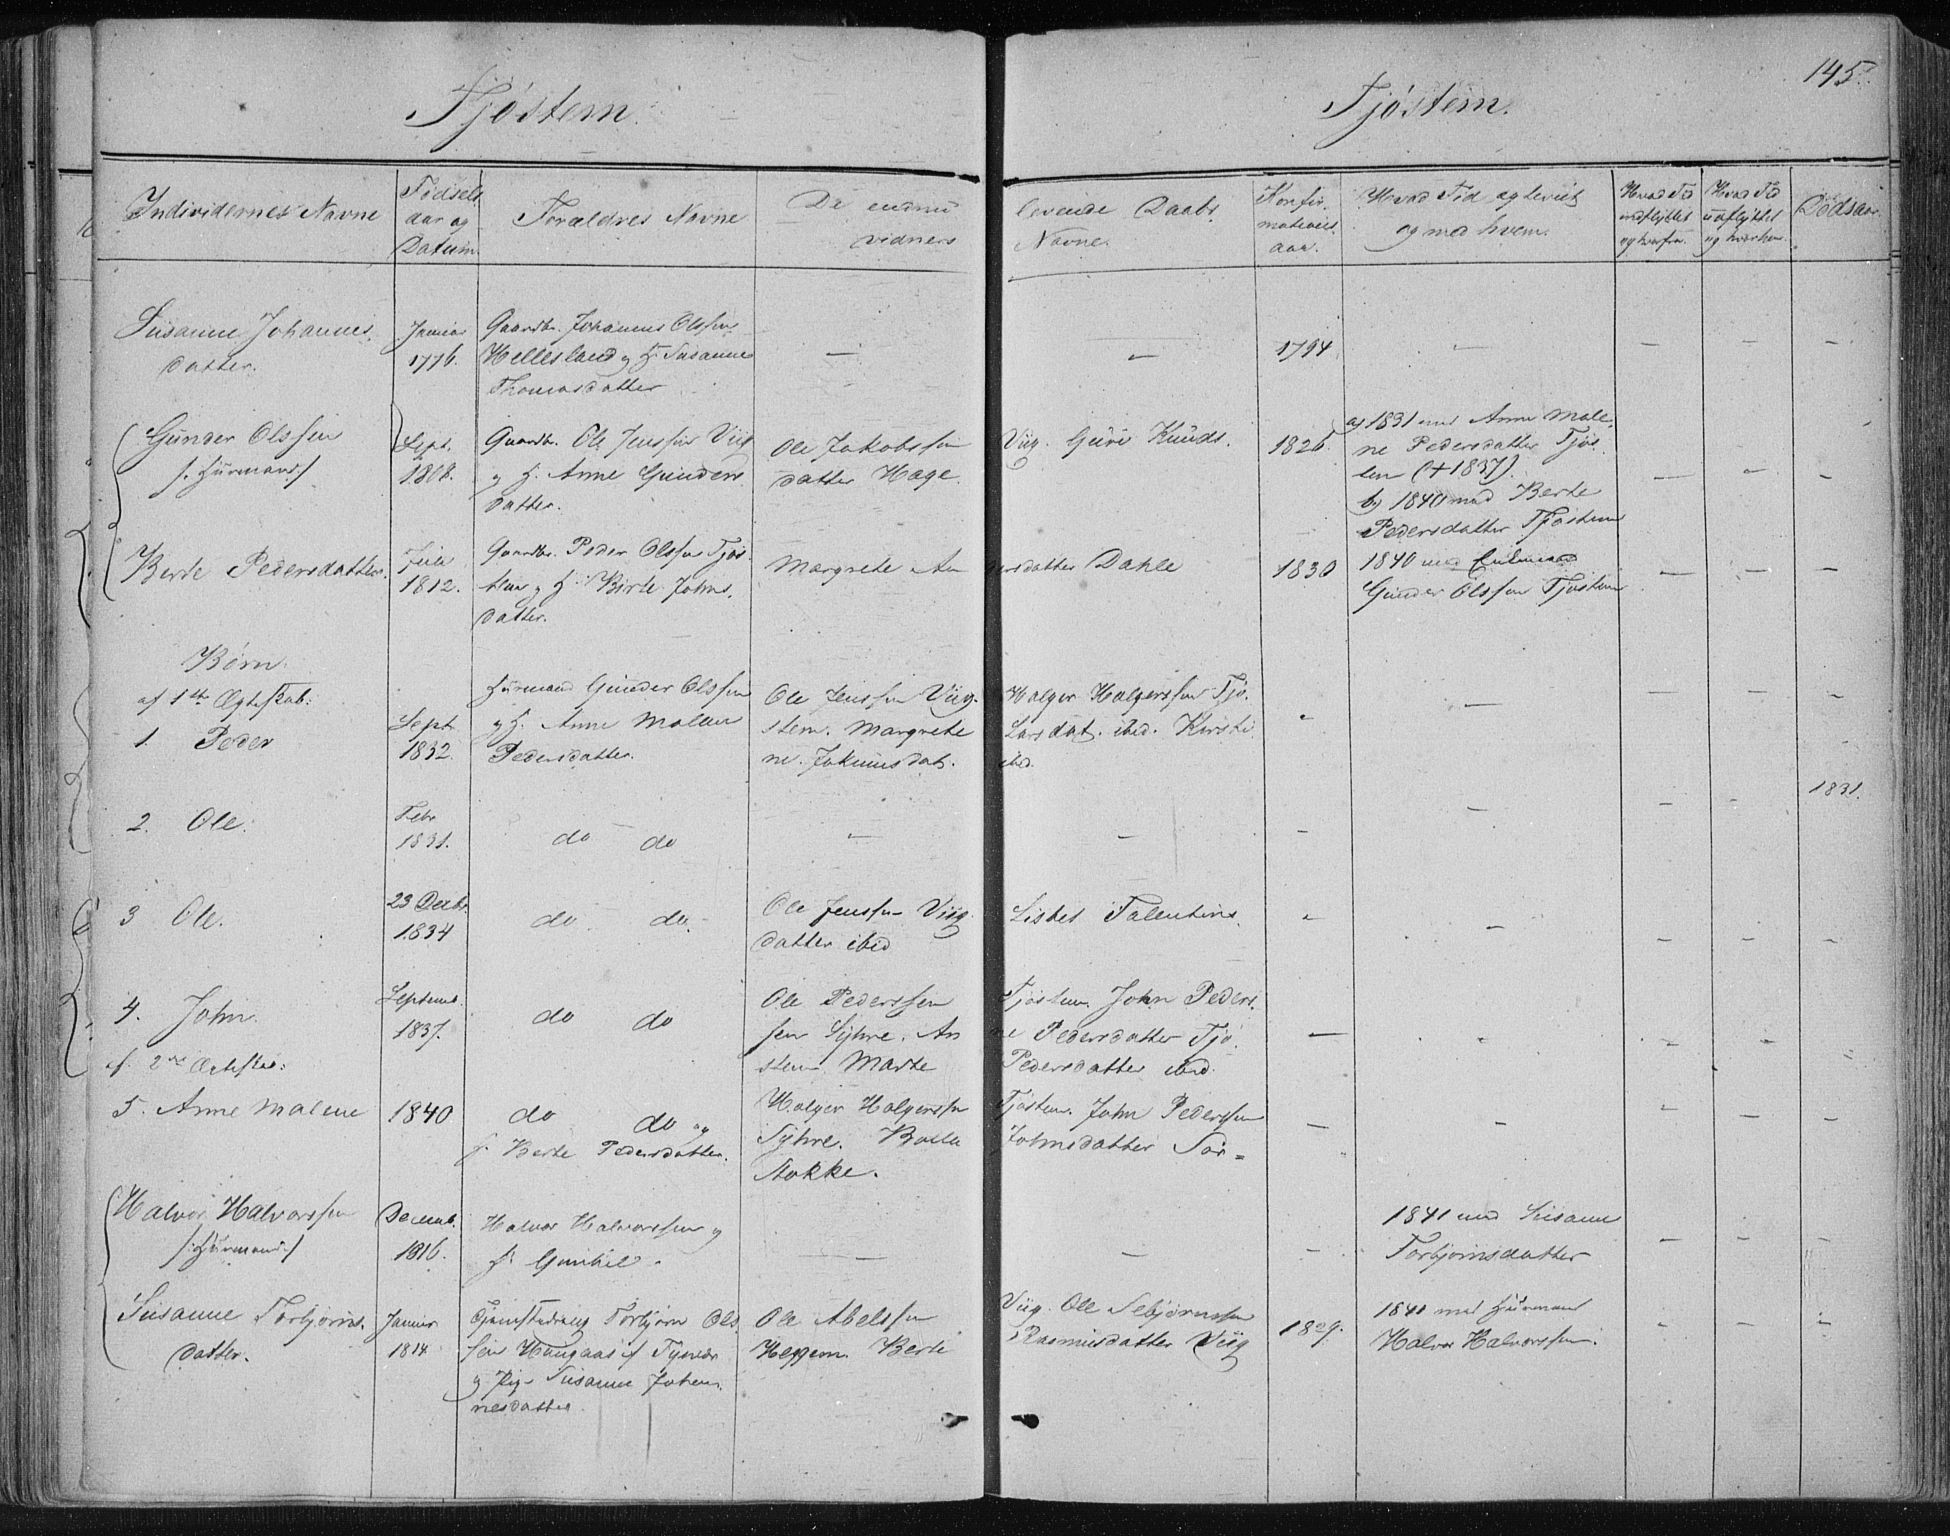 Tjøstem.
Tjøstem.
145.
Individernes Navne
Fødsels
aar og
Datum.
Forældres Navne
De endnu
vidners
levende Daabs
Navne.
Konfir
mations
aar.
Hvad Tid ægteviet
og med hvem.
Hvad Tid
indflyttet
og hvorfra.
Hvad Tid
udflyttet
og hvorhen.
Dødsaar.
Susanne Johannes
datter.
Januar
1776.
Gaardbr. Johannes Olssen
Hellesland og H. Susanne
Thomasdatter
—
—
1794
—
—
—
—
Gunder Olssen
/: Huusmand :/
Sept.
1808.
Gaardbr. Ole Jenssen Viig
og H. Anne Gunders
datter.
Ole Jakobssen
datter Hage.
Viig. Guri Knuds.
1826
a) 1831 med Anne Male
ne Pedersdatter Tjøs
tem (+1837)
b) 1840 med Berte
Pedersdatter Tjøstem
—
—
—
Berte Pedersdatter.
Juli
1812.
Gaardbr. Peder Olssen Tjøs
tem og H. Birte Johns
datter.
Margrete An
ersdatter Dahle
1830
1840 med Enkemand
Gunder Olssen Tjøstem
—
—
—
Børn
af 1ste Ægteskab:
1. Peder
Sept
1832.
Huusmand Gunder Olssen
og H. Anne Malene
Pedersdatter.
Ole Jenssen Viig.
stem. Margrete
ne. Jokumsdat.
Holger Holgerssen Tjø
Larsdat. ibid. Kirsti
ibid.
—
—
—
—
—
2. Ole.
Febr
1831.
do do
—
—
—
—
—
—
1831.
3 Ole.
23 Decbr.
1834
do do.
Ole Jenssen Viig.
datter ibid
Lisbet Talentins
—
—
—
—
—
4. John.
Septemb.
1837.
do do
Ole Pederssen
sen Syhre. An
stem Marte
Tjøstem. John Peders
ne Pedersdatter Tjø
Pedersdatter ibid.
—
—
—
—
—
af 2den Ægteskab:
5. Anne Malene
1840
do do og
H. Berte Pedersdatter.
Holger Holgerssen
Syhre.
Stokke.
Tjøstem. John Pederssen
Johnsdatter Sør=
—
—
—
—
—
Halvor Halvorssen
/: Huusmand :/
Decemb.
1816.
Halvor Halvorssen og
H. Gunhil.
—
—
—
1841 med Susanne
Torbjørnsdatter
—
—
—
Susanne Torbjørns
datter.
Januar
1814
Torbjørn Ols
sen Haugaas af Tysvær
og Pige Susanne Johan
nesdatter.
Ole Abelssen
Heggem. Berte
Viig. Ole Sebjørnssen
Rasmusdatter Viig
1829.
1841 med Huusmand
Halvor Halvorssen.
—
—
—